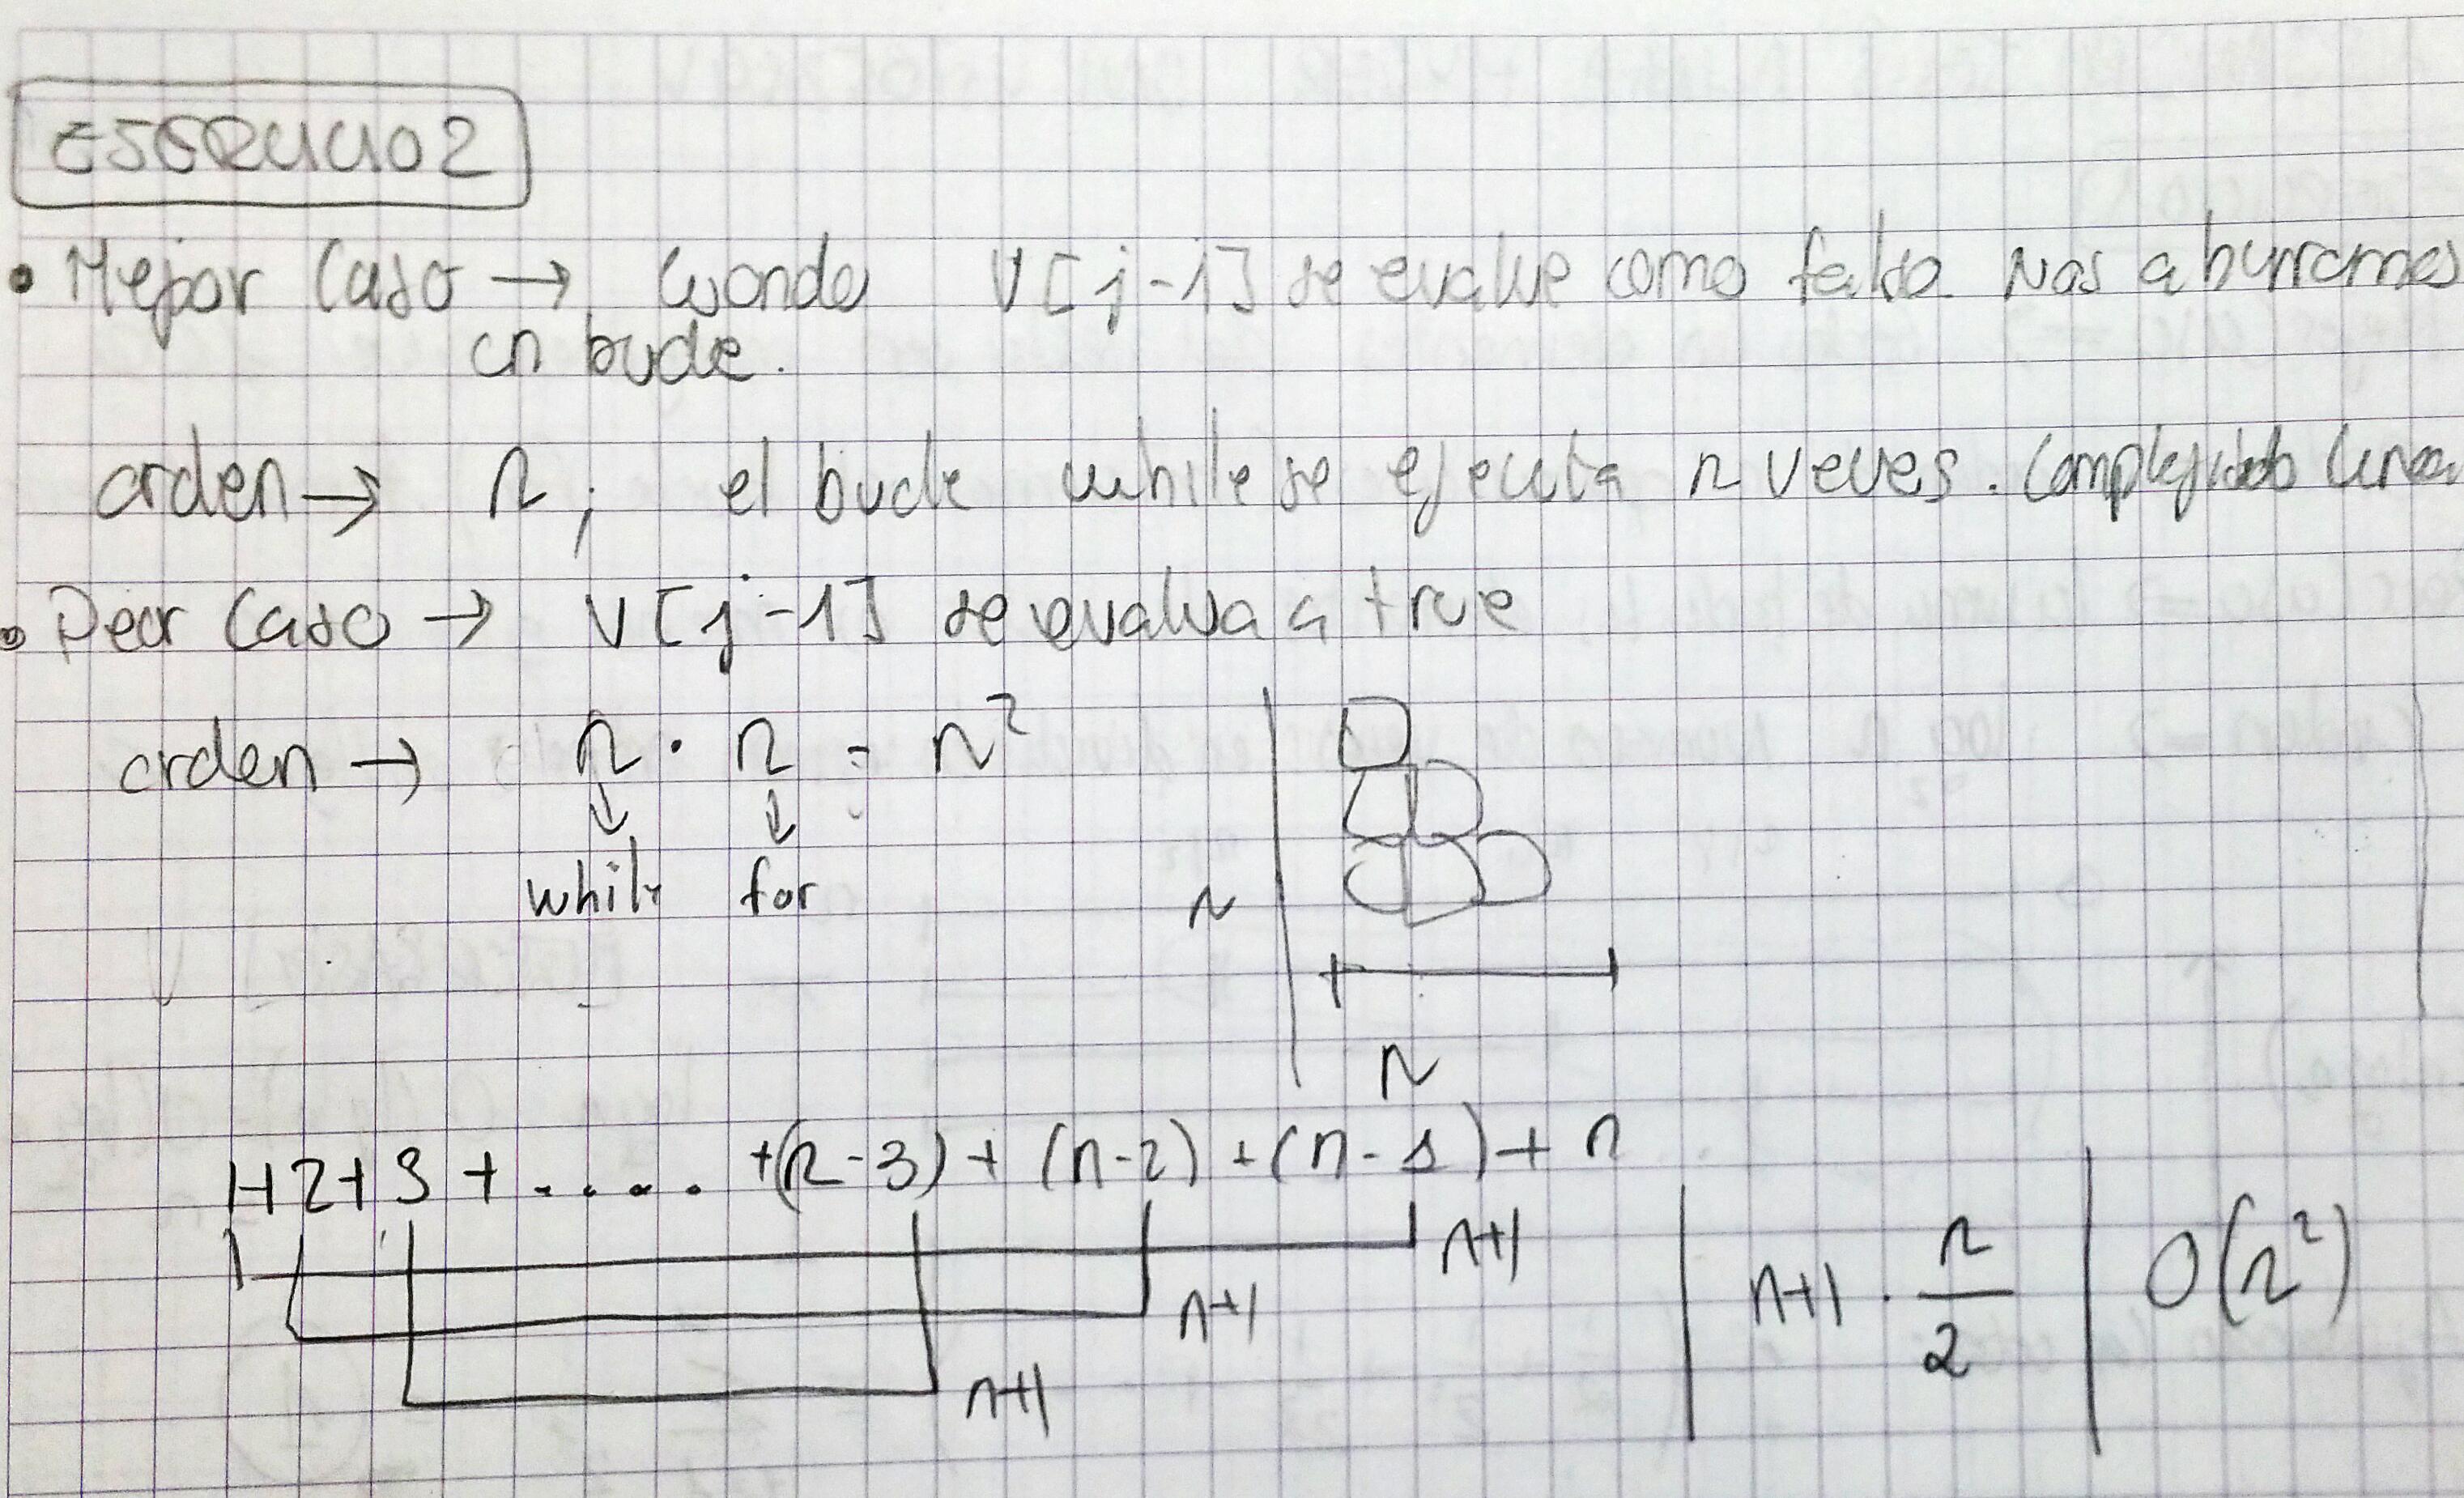 EJERCICIO 2
• Mejor Caso → cuando V[j-1] se evalue como falso. Nos ahorramos
un bucle.
orden → n ; el bucle while se ejecuta n veces. Complejidad linea
• Peor Caso → V[j-1] se evalua a true
orden → n · n = n²
while for
n
n
1+2+3+.....+(n-3)+(n-2)+(n-1)+n
n+1
n+1
n+1
n+1 · n/2
O(n²)